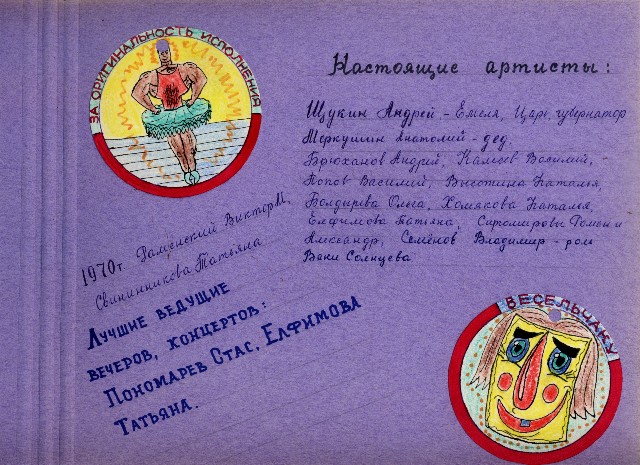 ЗА ОРИГИНАЛЬНОСТЬ ИСПОЛНЕНИЯ
Настоящие артисты:
Щукин Андрей - Емеля, Царь, губернатор
Меркушин Анатолий - дед.
Брюханов Андрей, Калсеев Василий,
Попов Василий, Высотина Наталья,
Болдырева Ольга, Хомякова Наталья,
Елфимова Татьяна, Сиромировы Роман и
Александр, Семёнов Владимир - роль
Вани Солнцева
1970г. Раменский Виктор М,
Свининникова Татьяна
Лучшие ведущие
вечеров, концертов:
Пономарев Стас, Елфимова
Татьяна.
ВЕСЕЛЬЧАКУ